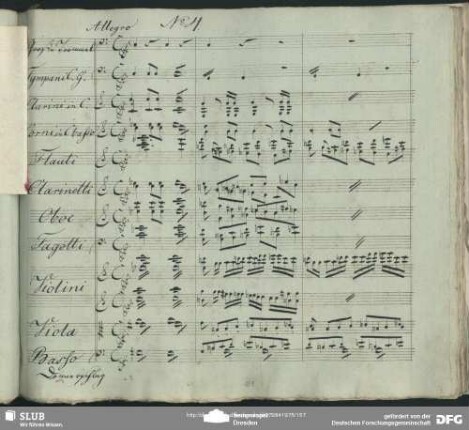 Allegro No 4.
Tympani C. G.
Clarini in C.
Corni in C basso
Flauti
Clarinetti
Oboe
Fagotti
Violini
Viola
Basso
SLUB
Wir führen Wissen.
Dresden
gefördert von der
Deutschen Forschungsgemeinschaft
DFG